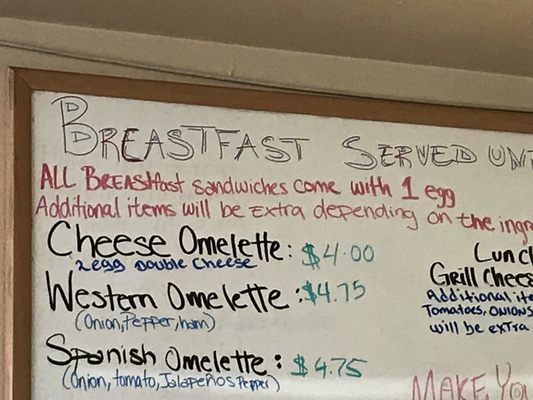 BREASTFAST SERVED
ALL BREASTfast sandwiches come with 1 egg
Additional items will be Extra depending on the
Cheese Omelette: $4.00
2egg Double Cheese
Western Omelette: $4.75
(Onion, Pepper, ham)
Spanish Omelette: $4.75
(Onion, tomato, Jalapeños Pepper)
Grill Cheese
Additional
Tomatoes, Onions
will be extra
MAKE